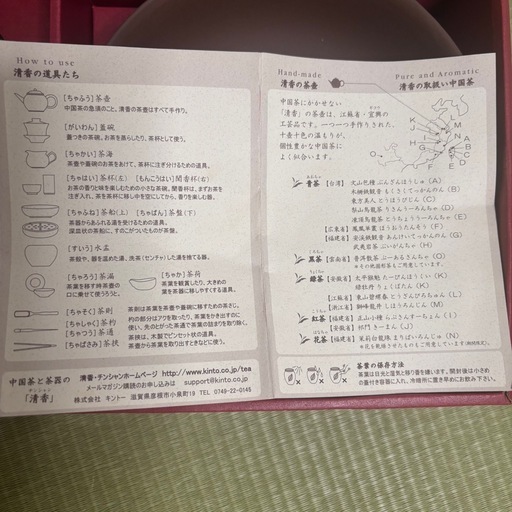 How to use
清香の道具たち
[ちゃふう] 茶壺
中国茶の急須のこと。清香の茶壺はすべて手作り。
[がいわん] 蓋碗
蓋つきの茶碗。お茶を蒸らしたり、茶杯として使う。
[ちゃかい] 茶海
茶壺や蓋碗のお茶をあけて、茶杯に注ぎ分けるための道具。
[ちゃはい] 茶杯(左) [もんこうはい] 聞香杯(右)
お茶の香りや味を楽しむための小さな茶碗。聞香杯は、まずお茶を
注ぎ入れ、茶を茶杯に移し中を空にしてから、香りを楽しむ器。
[ちゃふね] 茶船(上) [ちゃばん] 茶盤(下)
茶器からあふれるお湯を受けるための道具。
深皿状の茶船に、すのこがついたものが茶盤。
[すいう] 水盂
茶殻や、器を温めた湯、洗茶(センチャ)した湯を捨てる器。
[ちゃろう] 茶漏
茶葉を移す時茶壺の
口に乗せ使うろうと。
[ちゃか] 茶荷
茶葉を観賞したり、大きめの
葉を茶器に移しやすくする道具。
[ちゃそく] 茶則
[ちゃしゃく] 茶杓
[ちゃつう] 茶通
[ちゃばさみ] 茶挟
茶則は茶葉を茶壺や蓋碗に移すための茶さじ。
杓の部分はアクを取ったり、茶葉をかき出すのに
使い、先のとがった茶通で茶漏の詰まりを取り除く。
茶挟は、木製でピンセット状の道具。
茶壺から茶葉を取り出すときなどに使う。
中国茶と茶器の
「清香」
チンシャン
清香・チンシャンホームページ http://www.kinto.co.jp/tea
メールマガジン購読のお申し込みは support@kinto.co.jp
株式会社 キントー 滋賀県彦根市小泉町19 TEL 0749-22-0145
Hand-made
清香の茶壺
中国茶にかかせない
「清香」の茶壺は、江蘇省・宜興の
工芸品です。一つ一つ手作りされた、
十壺十色の温もりが、
個性豊かな中国茶に
よく似合います。
Pure and Aromatic
清香の取扱い中国茶
青茶
【台湾】
文山包種 ぶんざんほうしゅ (A)
木柵鉄観音 もくさくてっかんのん (B)
東方美人 とうほうびじん (C)
梨山烏龍茶 りさんうーろんちゃ (D)
凍頂烏龍茶 とうちょううーろんちゃ (E)
【広東省】 鳳凰単叢 ほうおうたんそう (F)
【福建省】 安渓鉄観音 あんけいてっかんのん (G)
武夷岩茶 ぶいがんちゃ (H)
黒茶
【雲南省】 普洱散茶 ぷーあるさんちゃ (O)
※その他固形茶もご用意しています。
緑茶
【安徽省】 太平猴魁 たーぴんほうくい (K)
緑牡丹 りょくぼたん (K)
【江蘇省】 東山碧螺春 とうざんぴろちゅん (L)
【浙江省】 獅峰龍井 しほうろんじん (M)
紅茶
【福建省】 正山小種 らぷさんすーちょん (I)
【安徽省】 祁門 きーまん (J)
花茶
【福建省】 茉莉白龍珠 まりはくろんじゅ (N)
茶葉の保存方法
茶葉は日光と湿気と移り香を嫌います。開封後は小さめ
の蓋付き容器に入れ、冷暗所に置き早めにお飲み下さい。